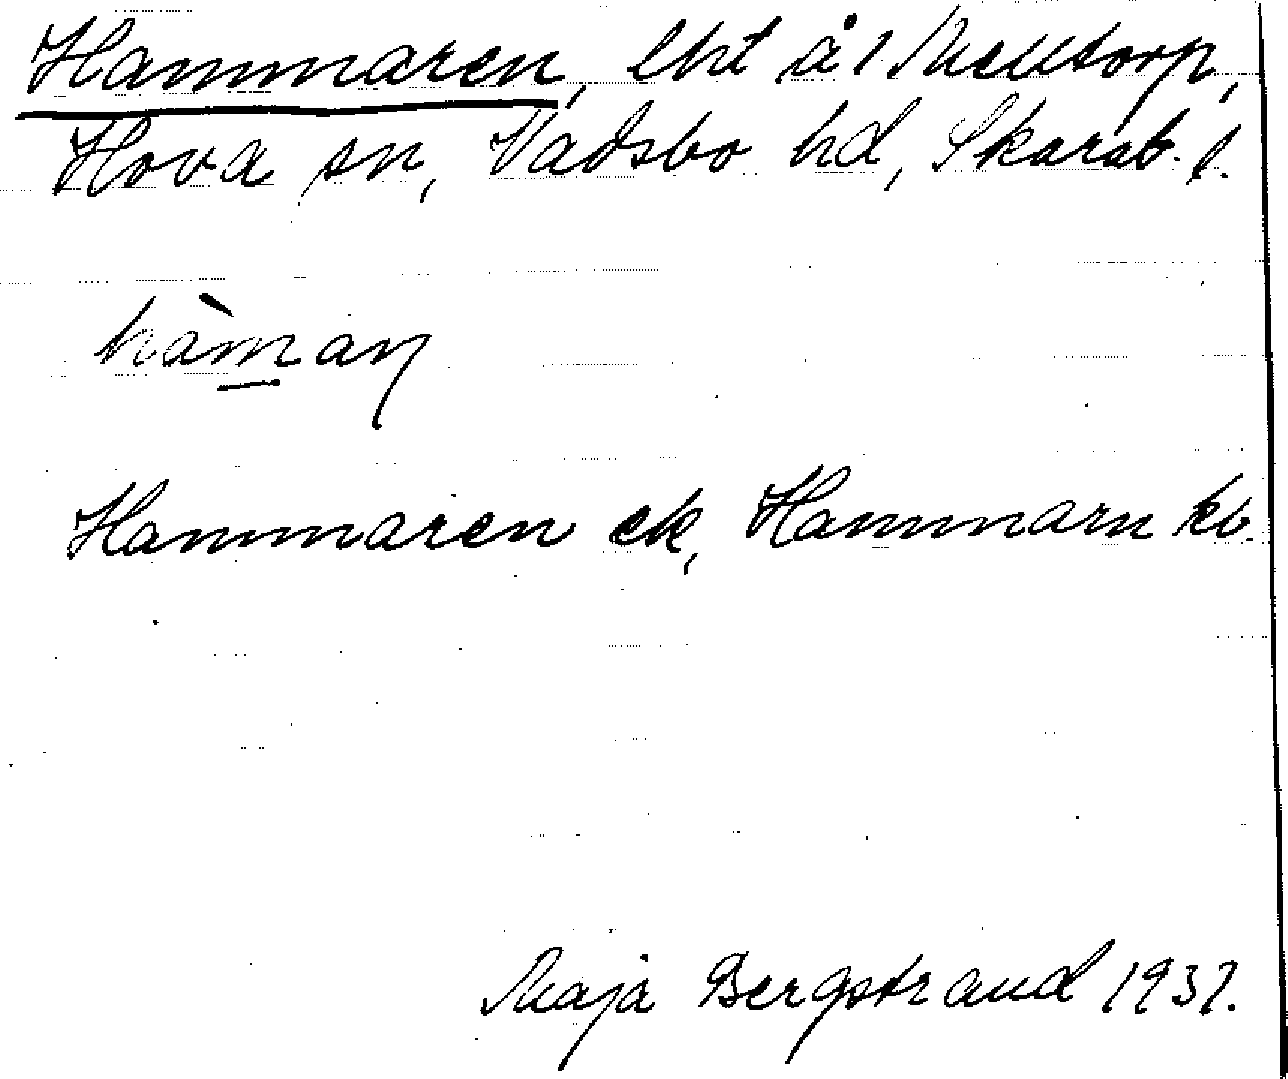 Hammaren, lht å 1 Melltorp,
Hova sn, Vadsbo hd, Skarab. l.
hàmaṇ
Hammaren ek, Hammarn kb.
Maja Bergstrand 1937.